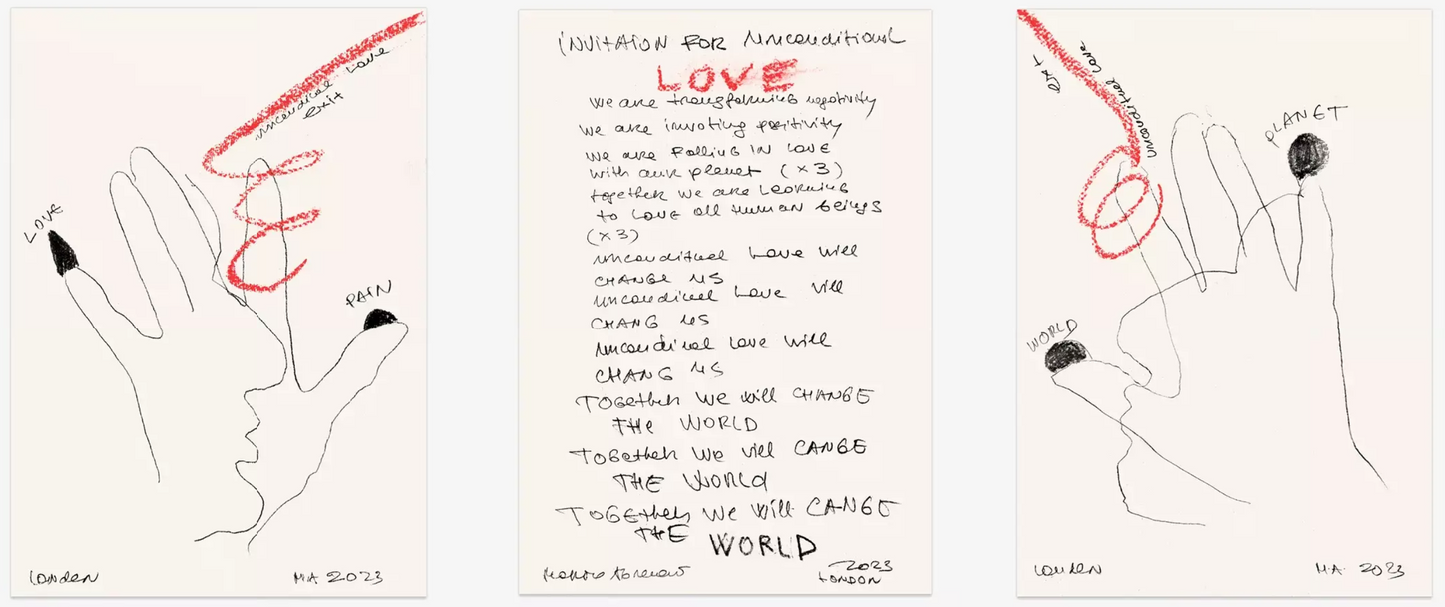 LOVE
unconditional love
exit
PAIN
LONDON
MA 2023
INVITAION FOR Unconditional
LOVE
we are transforming negativity
we are invoting positivity
we are falling IN LOVE
with our planet (x3)
together we are learning
to love all human beings
(x3)
unconditinel Love will
CHANGE US
uncondicinel Love will
CHANG US
uncondicinel love will
CHANG US
TOGether We will CHANGE
THe WORLD
TOGether We will CANGE
THE WORLd
TOGEther We Will CANGE
THE WORLD
2023
LONDON
exit
unconditinel Love
PLANET
WORLD
LONDEN
M.A. 2023